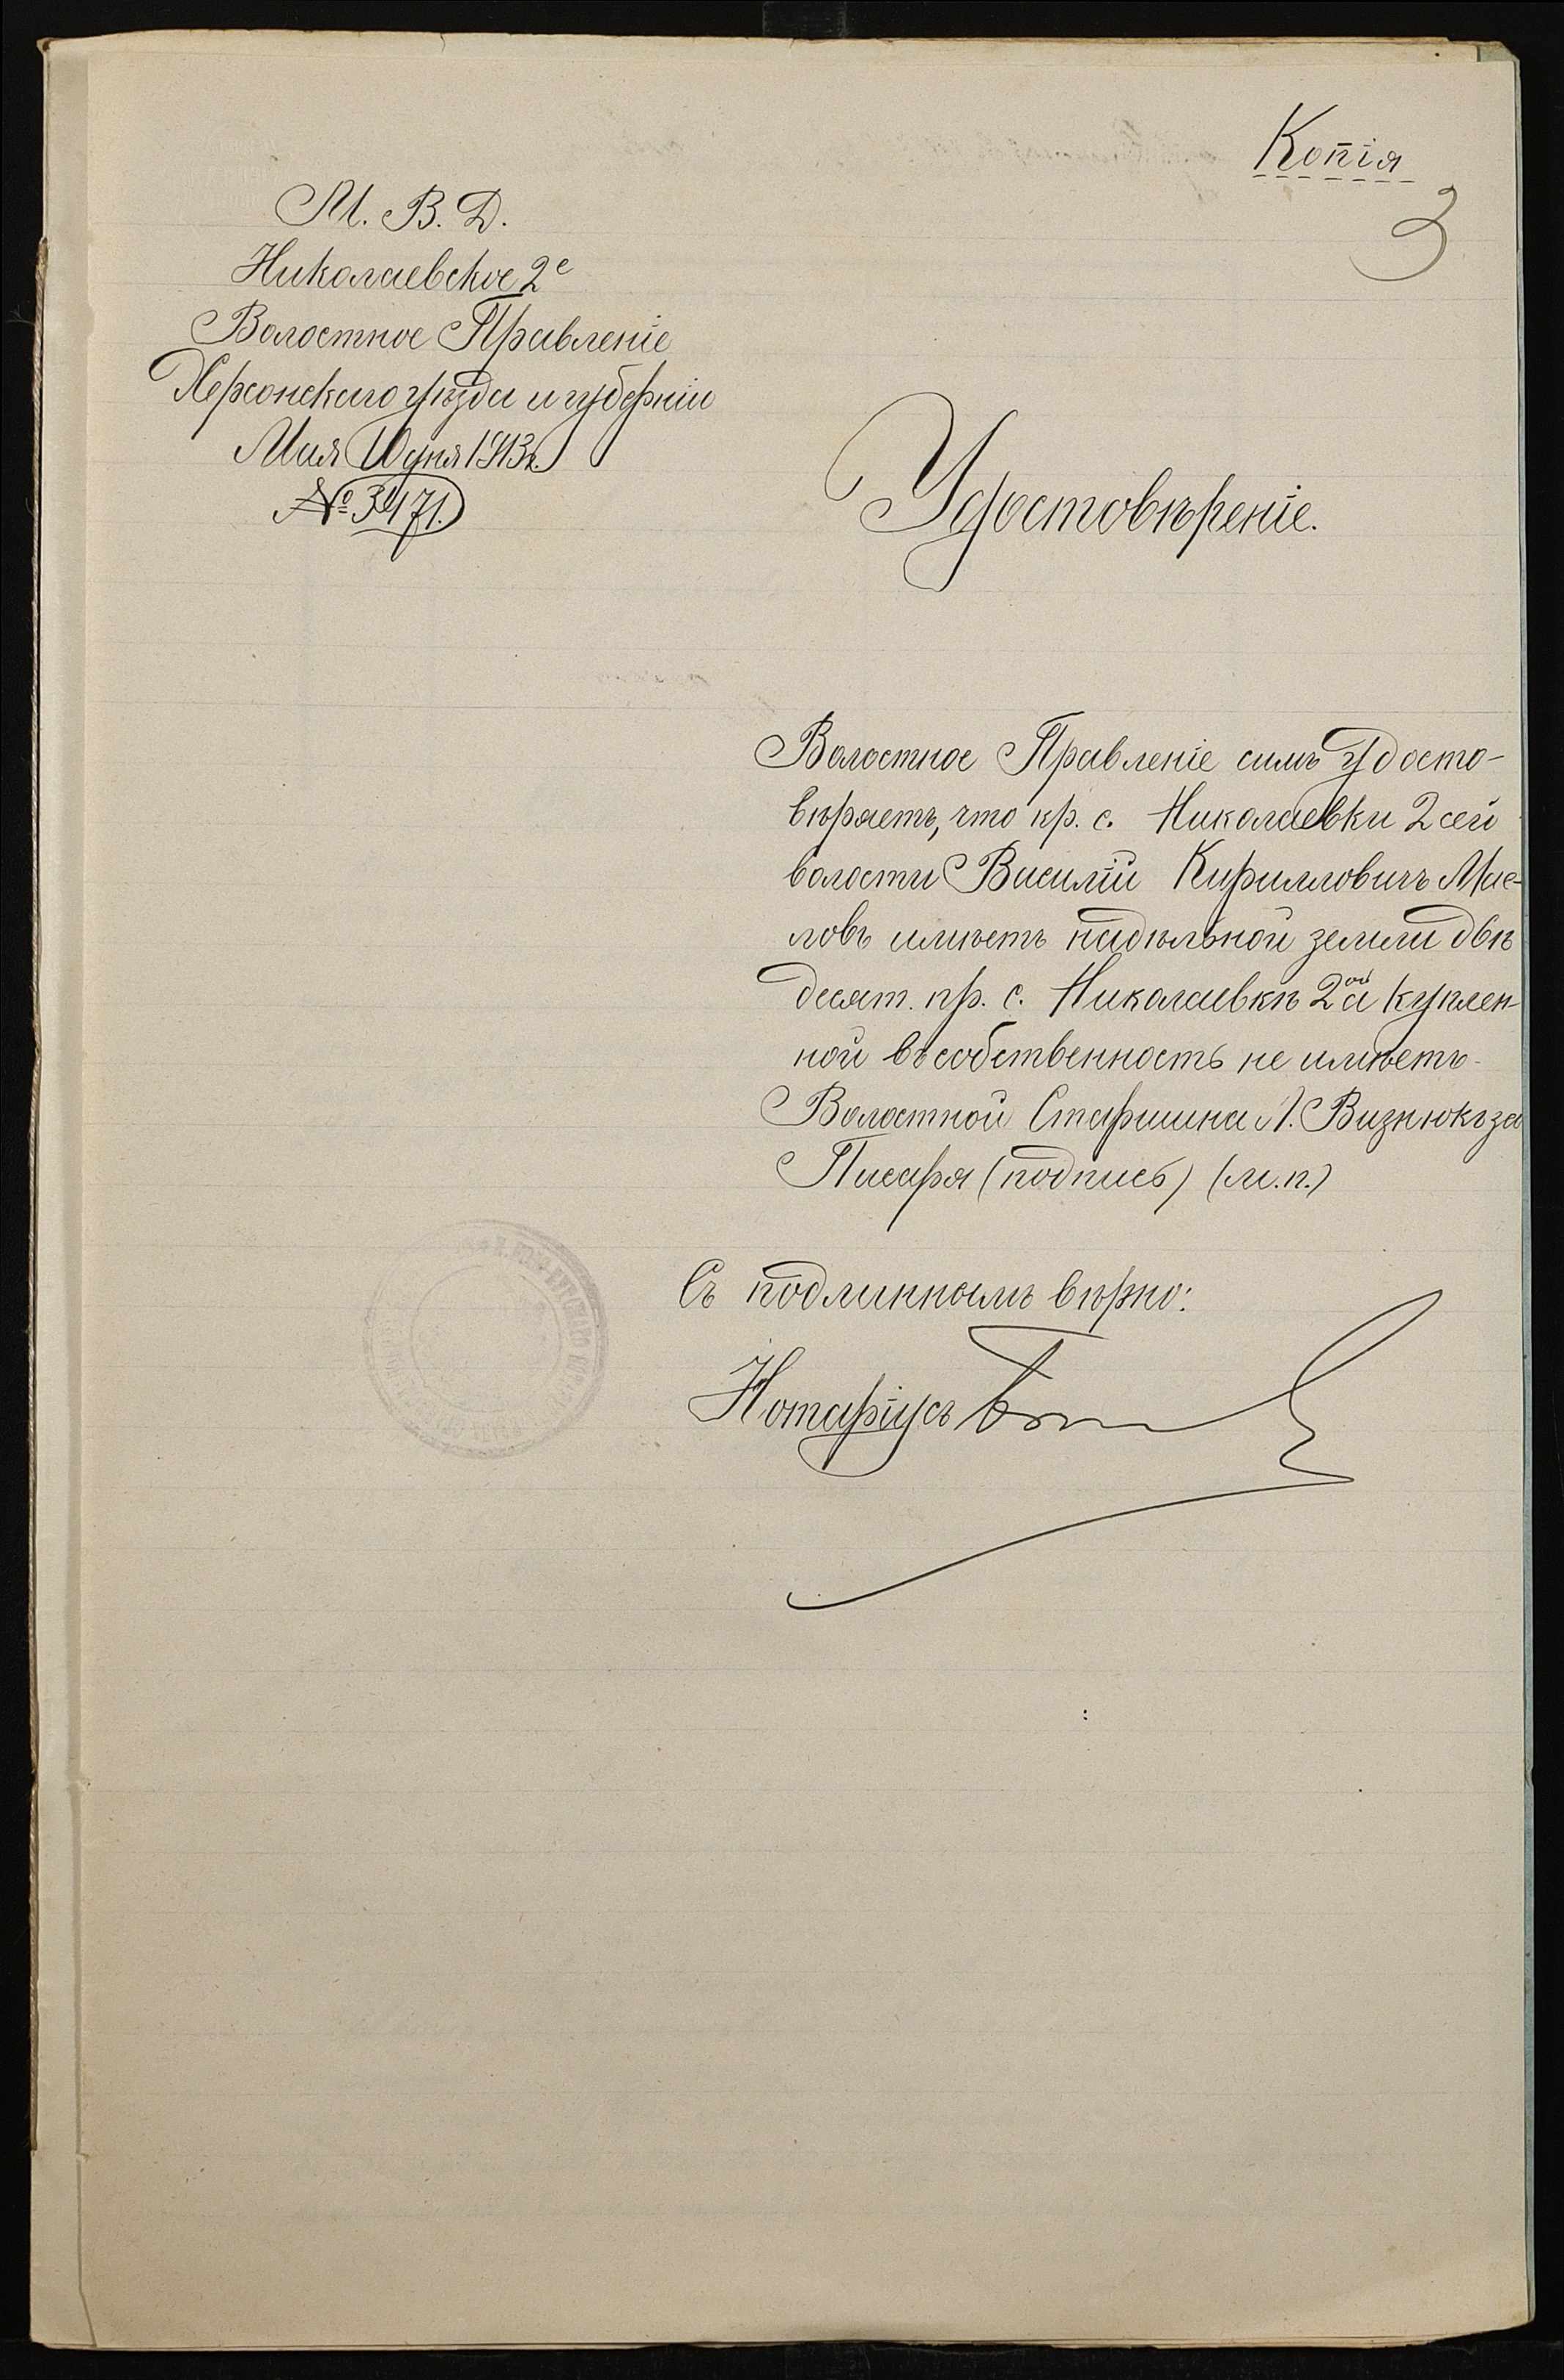 Копія
3
М. В. Д.
Николаевское 2е
Волостное Правленіе
Херсонскаго уѣзда и губерніи
Мая Іюня 1913 г.
№ 3471.
Удостовѣреніе.
Волостное Правленіе симъ удосто-
вѣряетъ, что кр. с. Николаевки 2 сей
волости Василій Кирилловичъ Мас-
ловъ имѣетъ надѣльной земли двѣ
десят. пр. с. Николаевкѣ 2ой куплен
ной въ собственность не имѣетъ
Волостной Старшина Л. Визнюкъ за
Писаря (подпись) (м.п.)
Съ подлиннымъ вѣрно:
Нотаріусъ